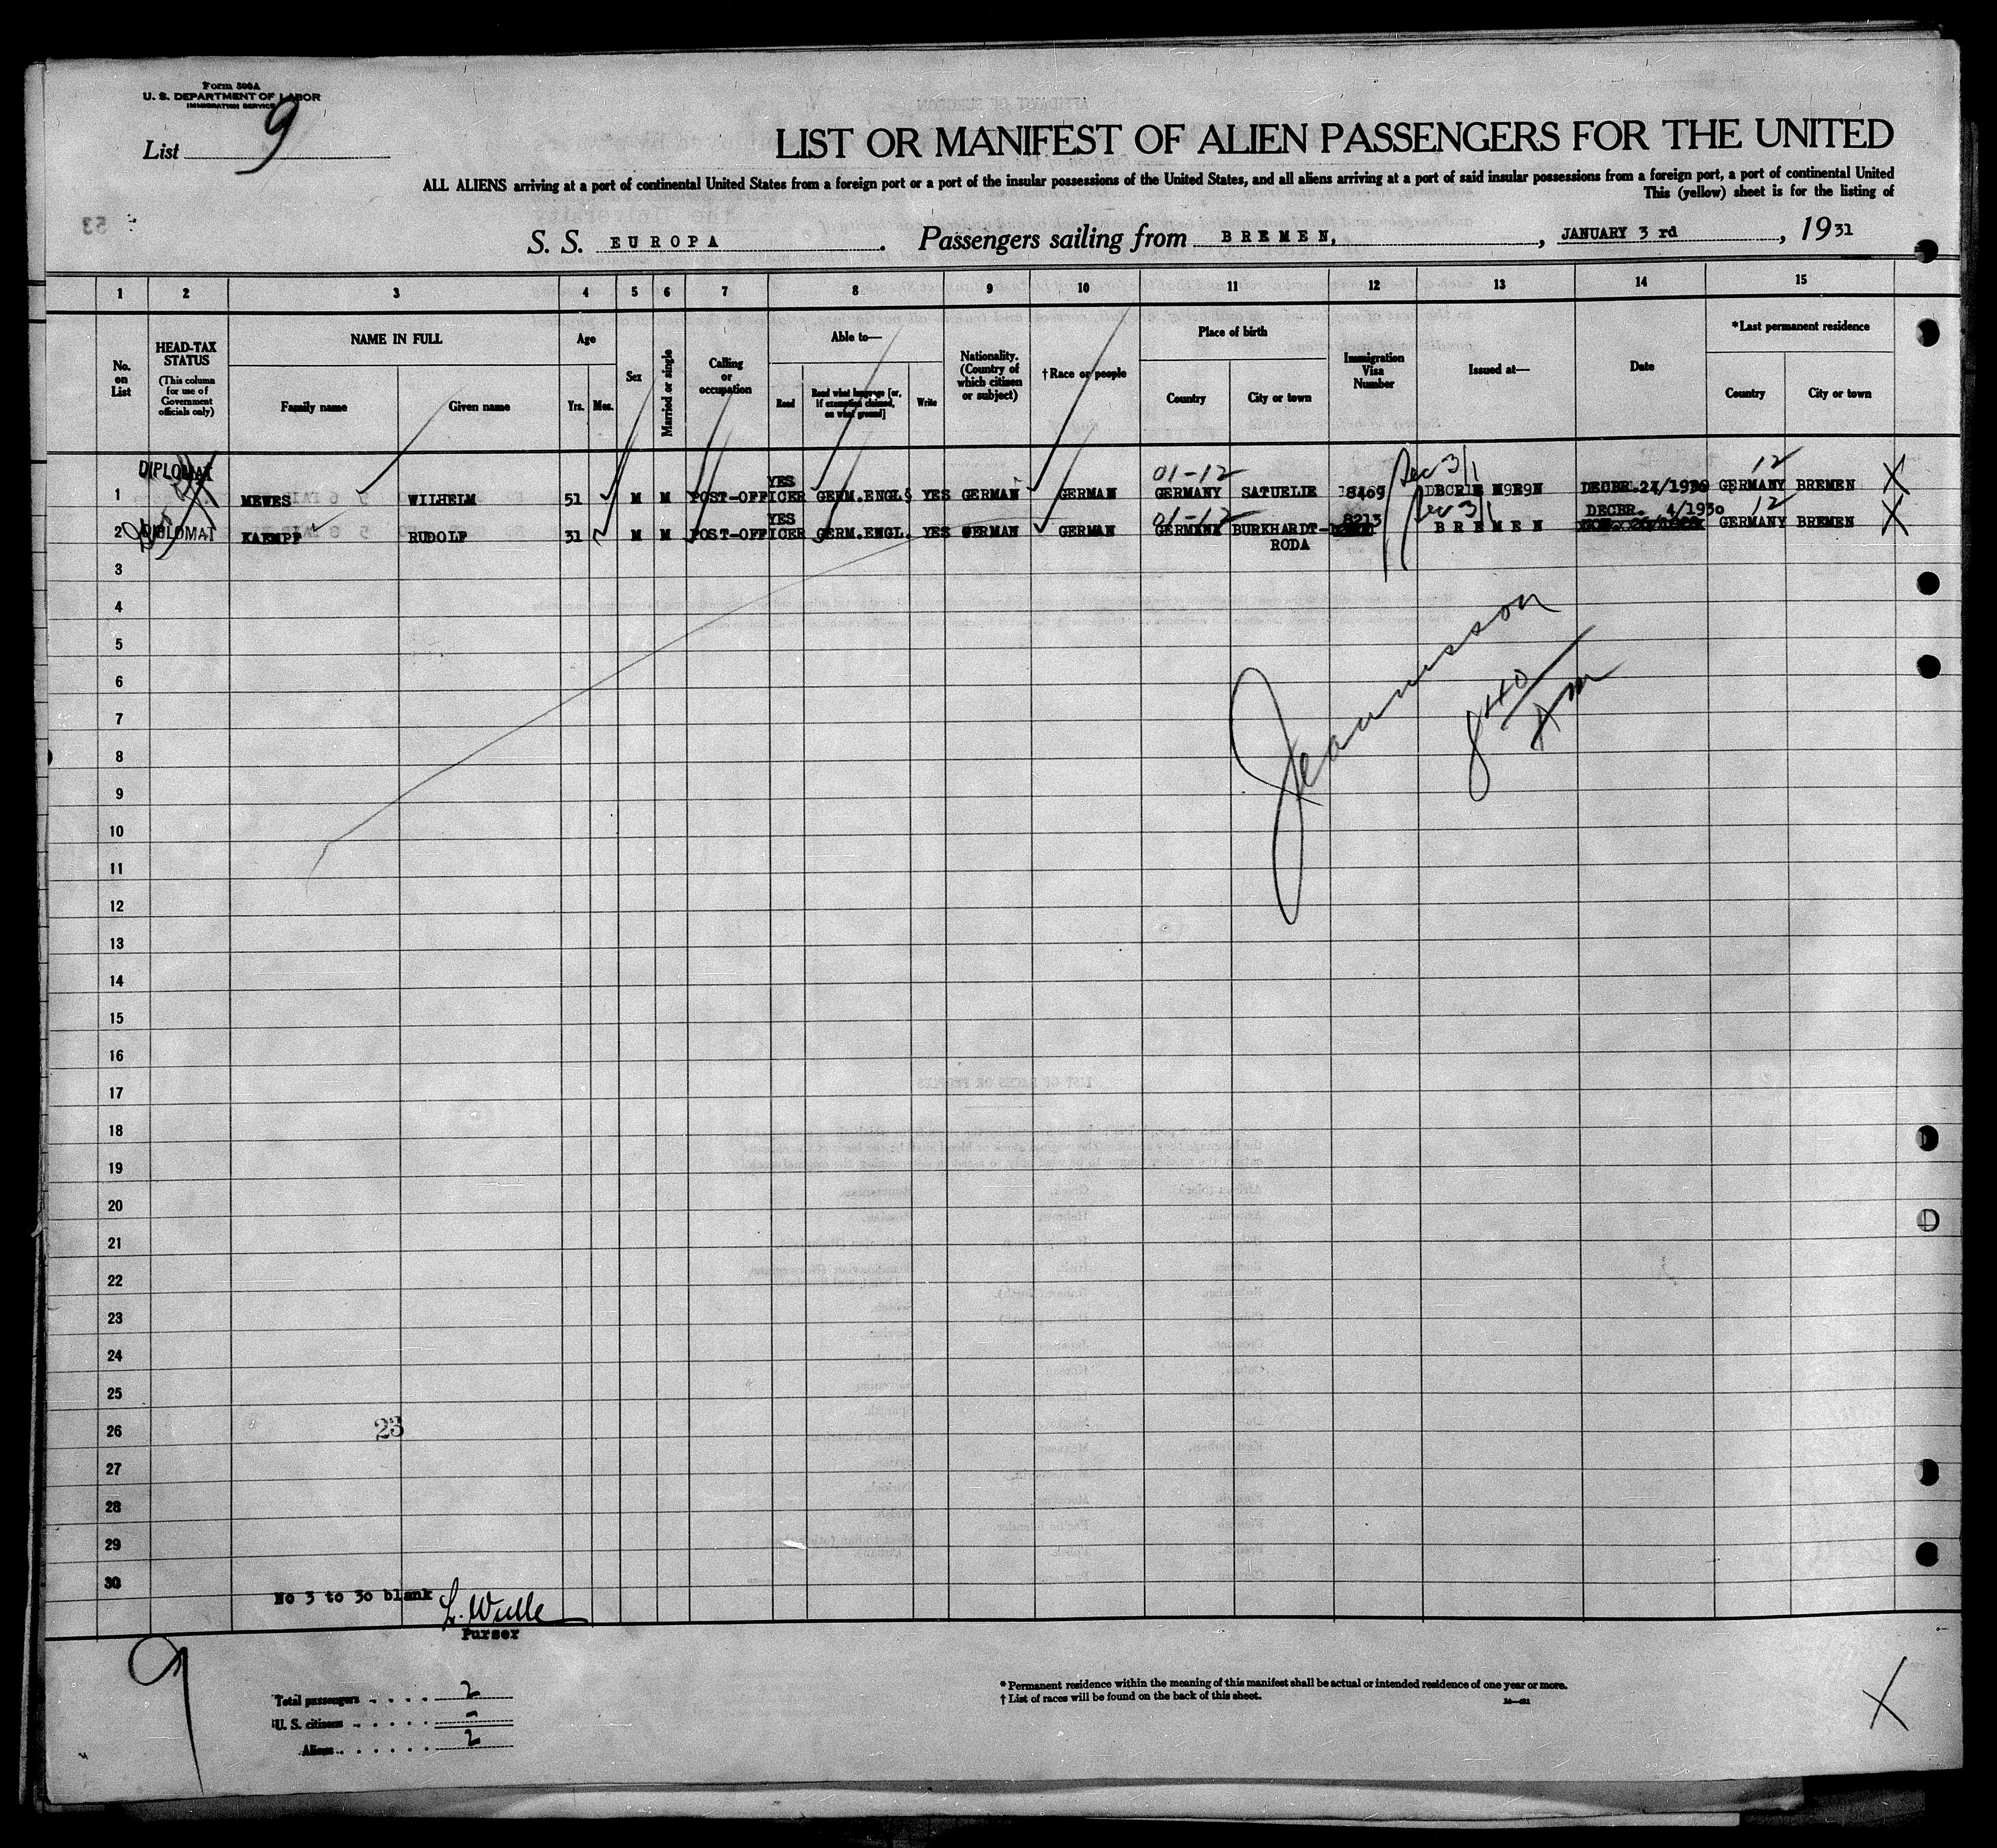 Form 500A
U. S. DEPARTMENT OF LABOR
IMMIGRATION SERVICE
List 9
LIST OR MANIFEST OF ALIEN PASSENGERS FOR THE UNITED
ALL ALIENS arriving at a port of continental United States from a foreign port or a port of the insular possessions of the United States, and all aliens arriving at a port of said insular possessions from a foreign port, a port of continental United
This (yellow) sheet is for the listing of
53
S. S. EUROPA. Passengers sailing from BREMEN, , JANUARY 3 rd , 1931
1 2 3 4 5 6 7 8 9 10 11 12 13 14 15
No. on List
HEAD-TAX STATUS
(This column for use of Government officials only)
NAME IN FULL
Family name
Given name
Age
Yrs.
Mos.
Sex
Married or single
Calling or occupation
Able to—
Read
Read what language [or, if exemption claimed, on what ground]
Write
Nationality. (Country of which citizen or subject)
† Race or people
Place of birth
Country
City or town
Immigration Visa Number
Issued at—
Date
*Last permanent residence
Country
City or town
DIPLOMAT YES 01-12 Dec 3/1 12
1 MEWES WILHELM 51 M M POST-OFFICER GERM.ENGL. YES GERMAN GERMAN GERMANY SATUELLE 8469 GERMANY BREMEN X
YES 01-12 8213 DECBR. 4/1930 12
2 DIPLOMAT KAEMPF RUDOLF 31 M M POST-OFFICER GERM.ENGL. YES GERMAN GERMAN GERMANY BURKHARDT- BREMEN GERMANY BREMEN X
RODA
3
4
5
6
7
8
9
10
11
12
13
14
15
16
17
18
19
20
21
22
23
24
25
26
23
27
28
29
30
No 3 to 30 blank
Purser
9
Total passengers 2
U. S. citizens -
Aliens 2
* Permanent residence within the meaning of this manifest shall be actual or intended residence of one year or more.
† List of races will be found on the back of this sheet.
X